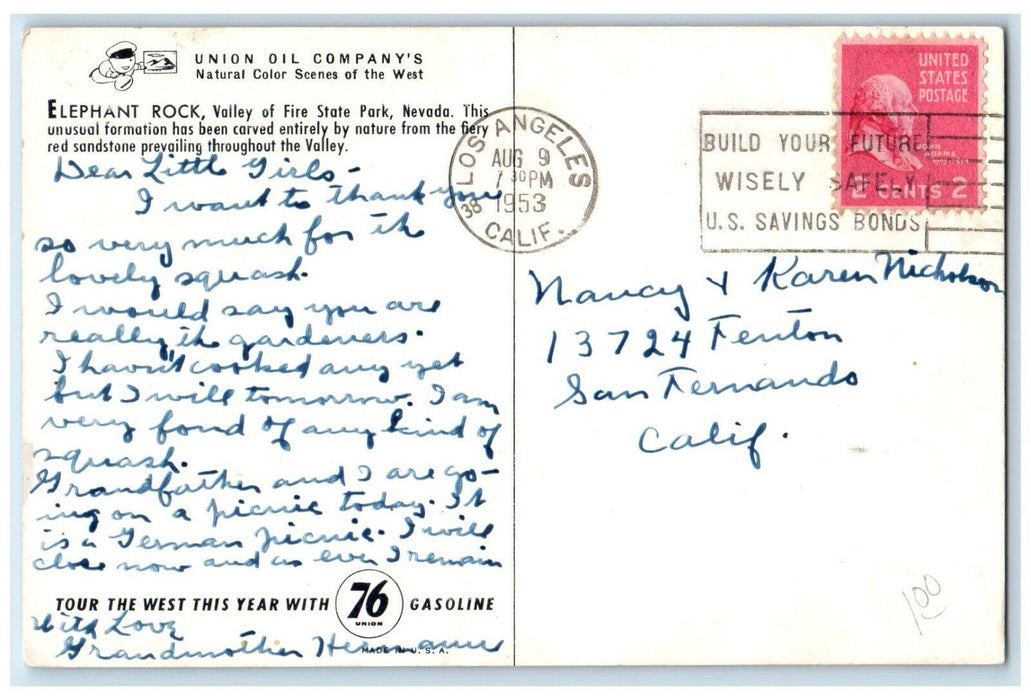 UNION OIL COMPANY'S
Natural Color Scenes of the West
ELEPHANT ROCK, Valley of Fire State Park, Nevada. This
unusual formation has been carved entirely by nature from the fiery
red sandstone prevailing throughout the Valley.
Dear Little Girls-
I want to thank you
so very much for the
lovely squash.
I would say you are
really the gardeners.
I havn't cooked any yet
but I will tomorrow. I am
very fond of any kind of
squash.
Grandfather and I are go-
ing on a picnic today. It
is a German picnic. I will
close now and as ever I remain
TOUR THE WEST THIS YEAR WITH 76 UNION GASOLINE
With Love
Grandmother
MADE IN U. S. A.
LOS ANGELES
AUG 9
7 30 PM
1953
38
CALIF.
BUILD YOUR FUTURE
WISELY SAFELY
U.S. SAVINGS BONDS
UNITED
STATES
POSTAGE
JOHN
ADAMS
2 CENTS 2
Nancy & Karen Nicholson
13724 Fenton
San Fernando
Calif.
100